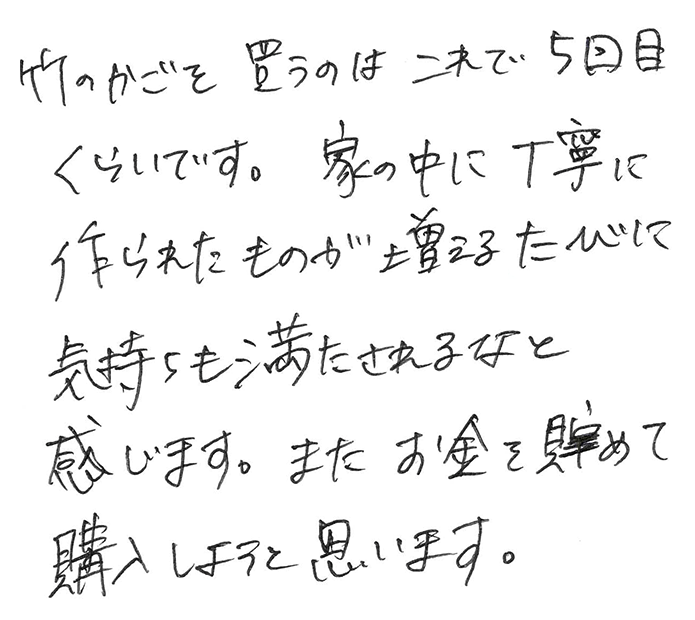 竹のかごを 買うのは これで 5回目
くらいです。 家の中に 丁寧に
作られた ものが 増える たびに
気持ちも 満たされるなと
感じます。 また お金を 貯めて
購入しようと 思います。